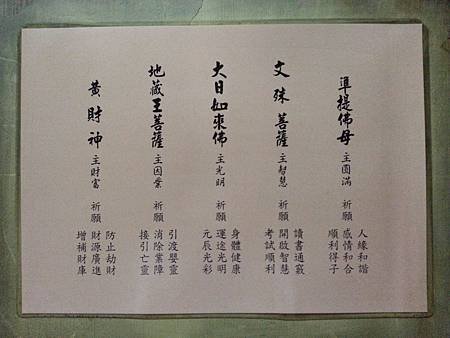 準提佛母 主圓滿 祈願
人緣和諧
感情和合
順利得子
文殊菩薩 主智慧 祈願
讀書通竅
開啟智慧
考試順利
大日如來佛 主光明 祈願
身體健康
運途光明
元辰光彩
地藏王菩薩 主因業 祈願
引渡嬰靈
消除業障
接引亡靈
黃財神 主財富 祈願
防止劫財
財源廣進
增補財庫